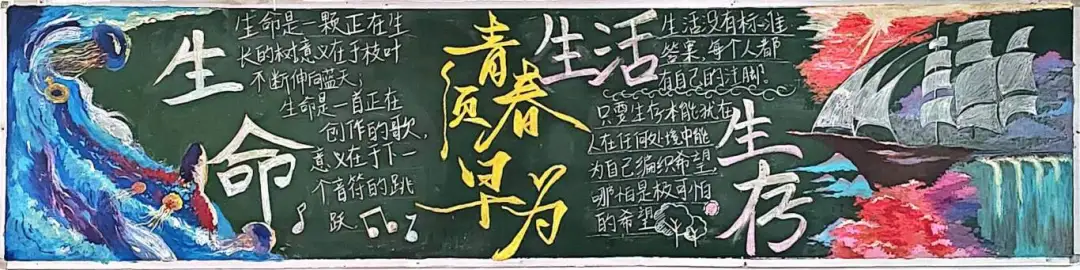 生命
生命是一颗正在生
长的树意义在于枝叶
不断伸向蓝天;
生命是一首正在
创作的歌,
意义在于下一
个音符的跳
跃
青春
须早为
生活
生活没有标准
答案,每个人都
有自己的注脚!
生存
只要生存本能犹在
人在任何处境中能
为自己编织希望,
哪怕是极可怕
的希望